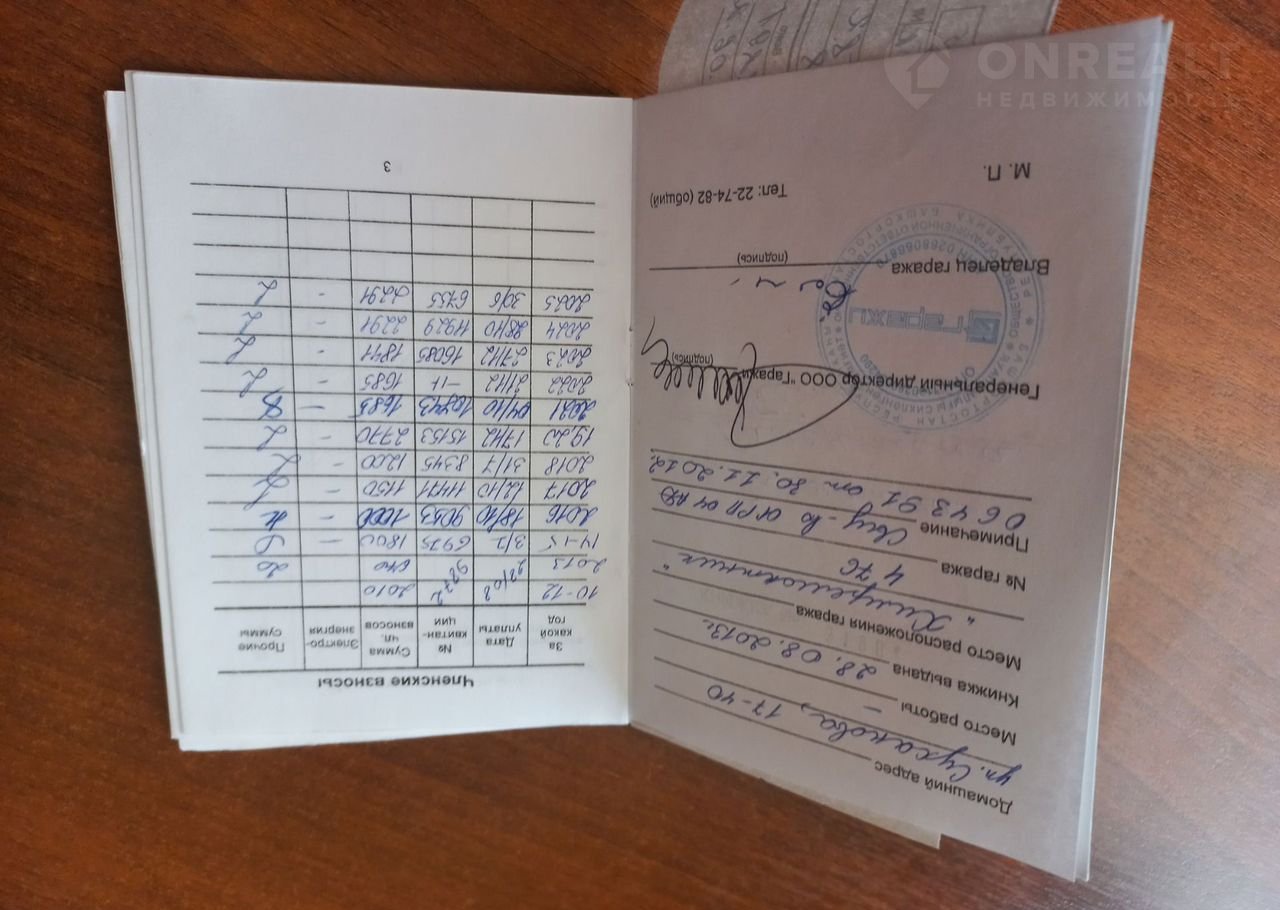 ONREALT
НЕДВИЖИМОСТЬ
Домашний адрес
ул. Суханова, 17-40
Место работы —
Книжка выдана 28.08.2013г.
Место расположения гаража
"Химремонтник"
№ гаража 476
Примечание Свид-во ОГРП 04 АД
064391 от 30.11.2012.
Генеральный директор ООО "Гаражи"
(подпись)
Владелец гаража
(подпись)
Тел: 22-74-82 (общий)
М. П.
гаражи
Членские взносы
За какой год Дата уплаты № квитан-ции Сумма чл. взносов Электро-энергия Прочие суммы
10-12 22/08 9872 2010
2013 640 20
14-15 3/2 6975 1800 —
2016 18/10 9053 1000 —
2017 12/10 11471 1150 —
2018 31/7 8345 1200 —
19,20 17/12 15153 2770 —
2021 04/10 10843 1685 —
2022 21/12 —11— 1685 —
2023 27/12 16085 1841 —
2024 28/10 11929 2291 —
2025 30/6 6755 2291 —
3